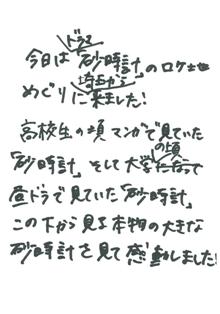 今日はドラマ「砂時計」のロケ地
めぐりに埼玉から来ました!
高校生の頃マンガで見ていた
「砂時計」そして大学の頃
昼ドラで見ていた「砂時計」
この下から見る本物の大きな
砂時計を見て感動しました!